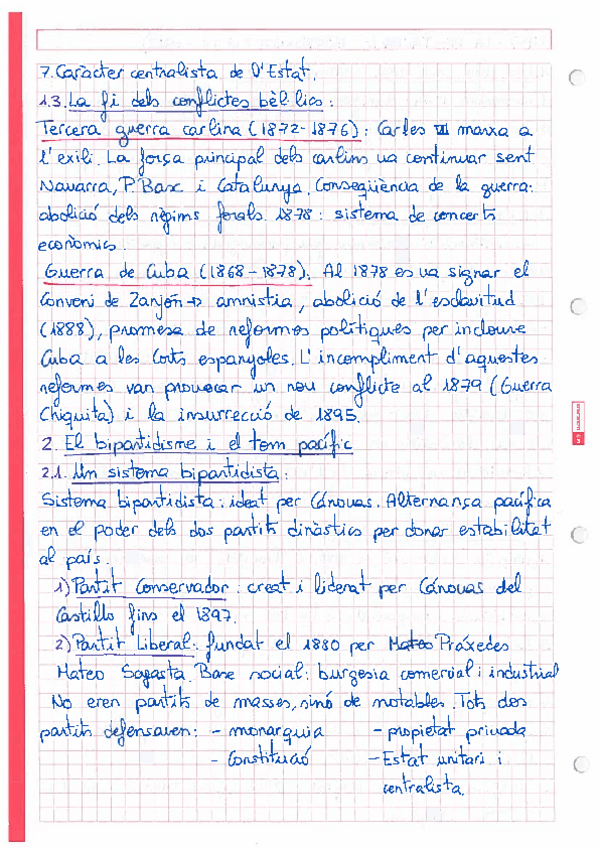 7. Caràcter centralista de l'Estat.
1.3. La fi dels conflictes bèl·lics:
Tercera guerra carlina (1872-1876): Carles VII marxa a
l'exili. La força principal dels carlins va continuar sent
Navarra, P. Basc i Catalunya. Conseqüència de la guerra:
abolició dels règims forals. 1878: sistema de concerts
econòmics.
Guerra de Cuba (1868-1878). Al 1878 es va signar el
Conveni de Zanjón → amnistia, abolició de l'esclavitud
(1888), promesa de reformes polítiques per incloure
Cuba a les Corts espanyoles. L'incompliment d'aquestes
reformes van provocar un nou conflicte al 1879 (Guerra
Chiquita) i la insurrecció de 1895.
2. El bipartidisme i el torn pacífic
2.1. Un sistema bipartidista:
Sistema bipartidista: ideat per Cánovas. Alternança pacífica
en el poder dels dos partits dinàstics per donar estabilitat
al país.
1) Partit Conservador: creat i liderat per Cánovas del
Castillo fins el 1897.
2) Partit Liberal: fundat el 1880 per Mateo Práxedes
Mateo Sagasta. Base social: burgesia comercial i industrial
No eren partits de masses, sinó de notables. Tots dos
partits defensaven: - monarquia - propietat privada
- Constitució - Estat unitari i
centralista.